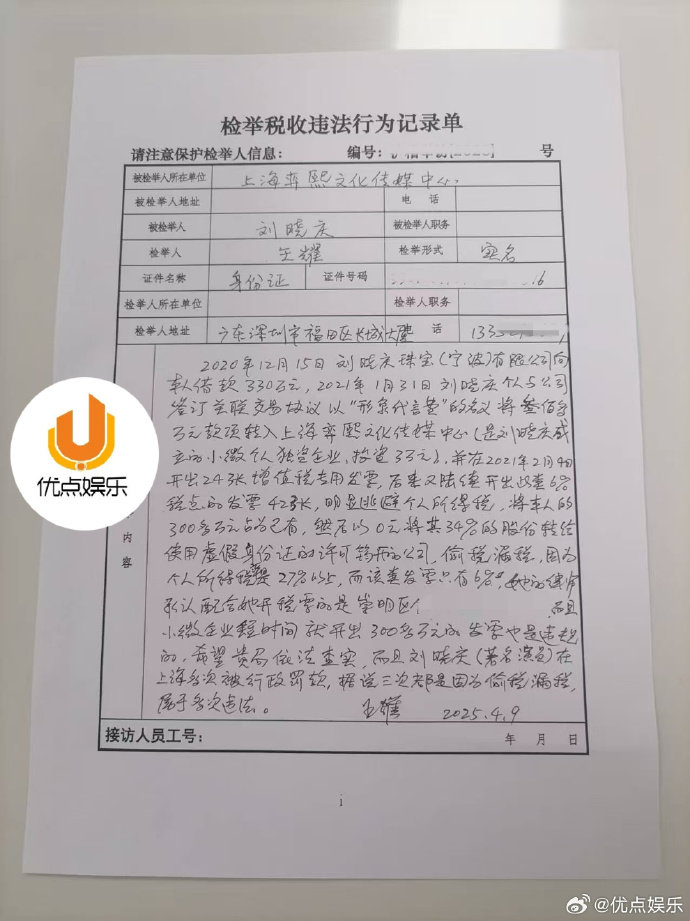 检举税收违法行为记录单
请注意保护检举人信息： 编号： 号
被检举人所在单位 上海弈熙文化传媒中心
被检举人地址 电 话
被检举人 刘晓庆 被检举人职务
检举人 王耀 检举形式 实名
证件名称 身份证 证件号码 6
检举人所在单位 检举人职务
检举人地址 广东深圳市福田区长城大 话 133
2020年12月15日刘晓庆珠宝(宁波)有限公司向
本人借款330万元，2021年1月31日刘晓庆个人与公司
签订关联交易协议以“形象代言费”的名义将叁佰多
万元款项转入上海弈熙文化传媒中心(是刘晓庆成
立的小微个人独资企业，投资3万元)，并在2021年2月4日
开出24张增值税专用发票，后来又陆续开出此套6%
税点的发票42张，明显逃避个人所得税，将本人的
300多万元占为已有，然后以0元将其34%的股份转给
使用虚假身份证的许可 的公司，偷税漏税，因为
个人所得税是27%以上，而该套发票只有6%，她的律师
承认配合她开税票的是崇明区 而且
小微企业短时间就开出300多万元的发票也是违规
的，希望贵局依法查实，而且刘晓庆(著名演员)在
上海多次被行政罚款，据说三次都是因为偷税漏税，
属于多次违法。 王耀 2025.4.9
内容
接访人员工号： 年 月 日
1
优点娱乐
@优点娱乐